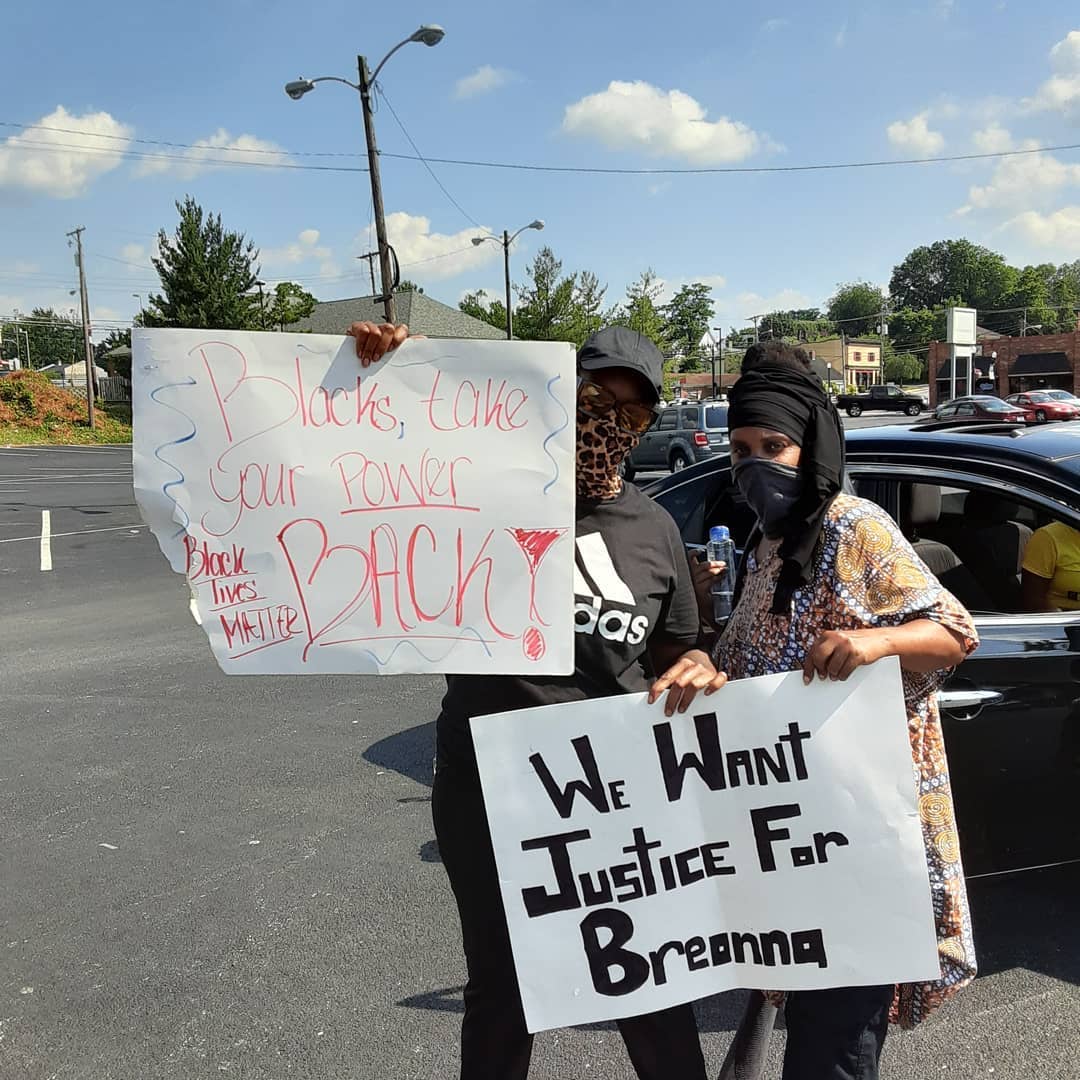 Blacks, take
your POWER
BACK!
Black
lives
MATTER
das
We Want
Justice For
Breonna